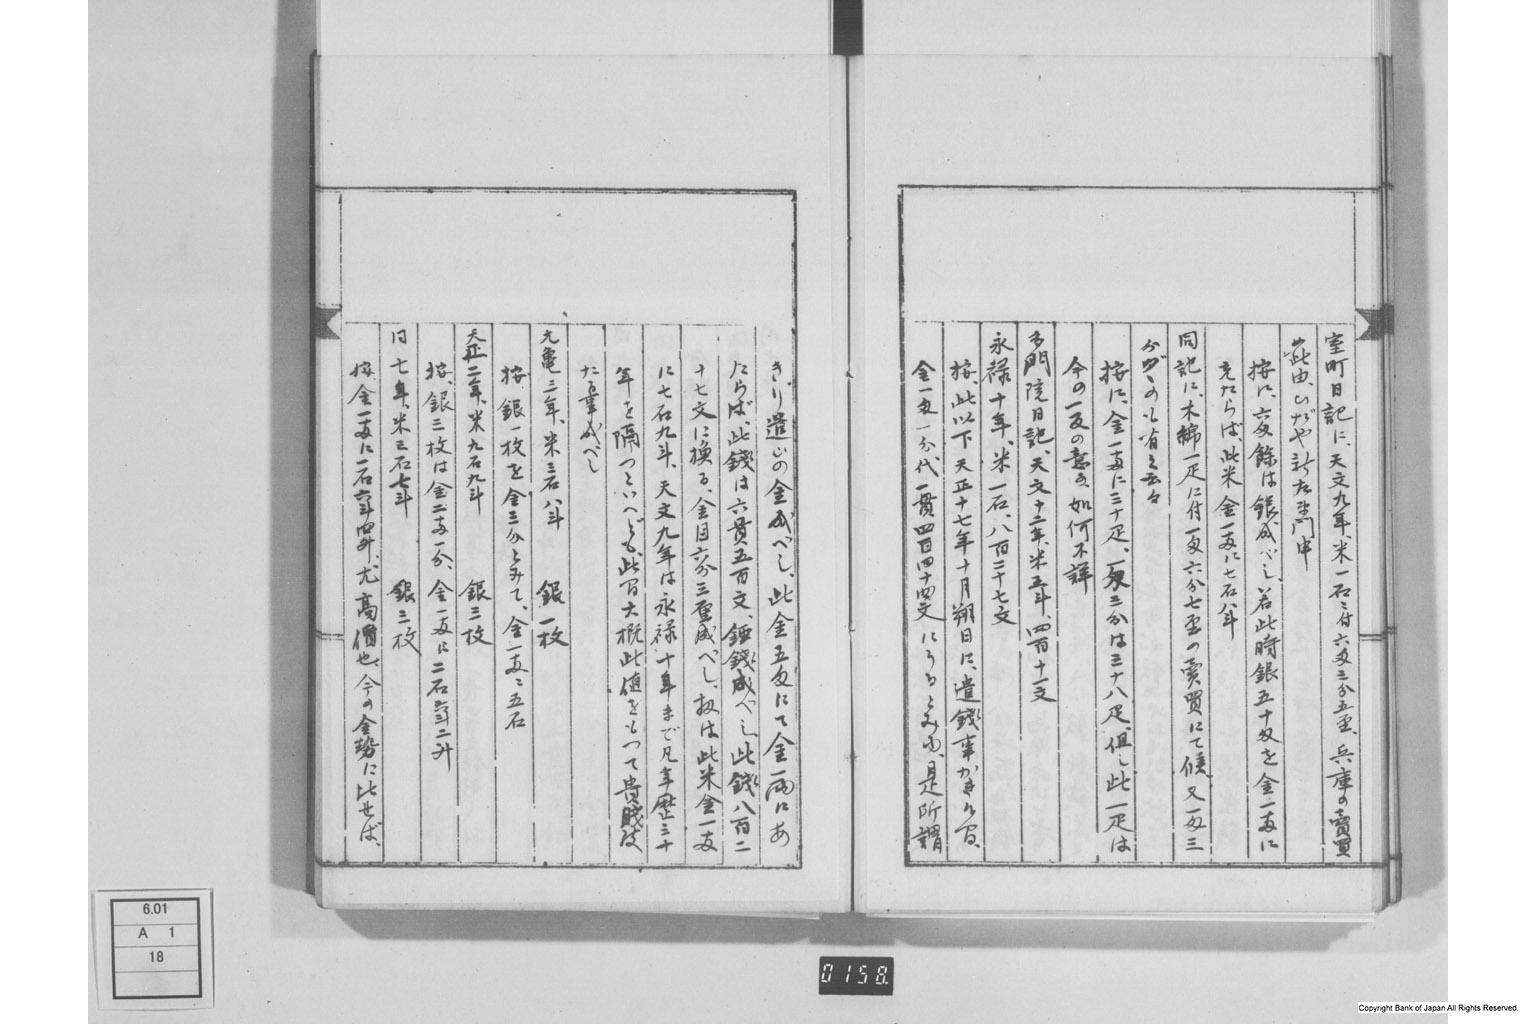 室町日記に、天文九年、米一石ニ付六匁三分五厘、兵庫の賣買
此由、ひがや新左衛門申
按に、六匁餘は銀成べし、若此時銀五十匁を金一両に
充たらば、此米金一両に七石八斗
同記に、木綿一疋に付一匁六分七厘の賣買にて候、又一匁三
分がへのも有之云々
按に、金一両に三十疋、一匁三分は三十八疋、但し此一疋は
今の一反の意か、如何不詳
多門院日記、天文十二年、米五斗、四百十一文
永禄十年、米一石、八百二十七文
按、此以下天正十七年十月朔日に、遣銭事かきれ間、
金一匁一分代一貫四百四十四文にうるとみゆ、是所謂
きり遣ひの金成べし、此金五匁にて金一両にあ
たらば、此錢は六貫五百文、錏錢成べし、此錢八百二
十七文に換る、金目六分三厘成べし、扨は此米金一両
に七石九斗、天文九年は永禄十年まで凡年歴三十
年を隔つといへども、此間大概此値をもつて貴賤せ
た事成べし
元亀三年、米三石八斗　銀一枚
按、銀一枚を金三分とみて、金一両ニ五石
天正二年、米九石九斗　銀三枚
按、銀三枚は金二両一分、金一両に二石六斗二升
同七年、米三石七斗　銀三枚
按、金一両に一石六斗四升、尤高價也、今の金勢に比せば、
6.01
A 1
18
0158
Copyright Bank of Japan All Rights Reserved.